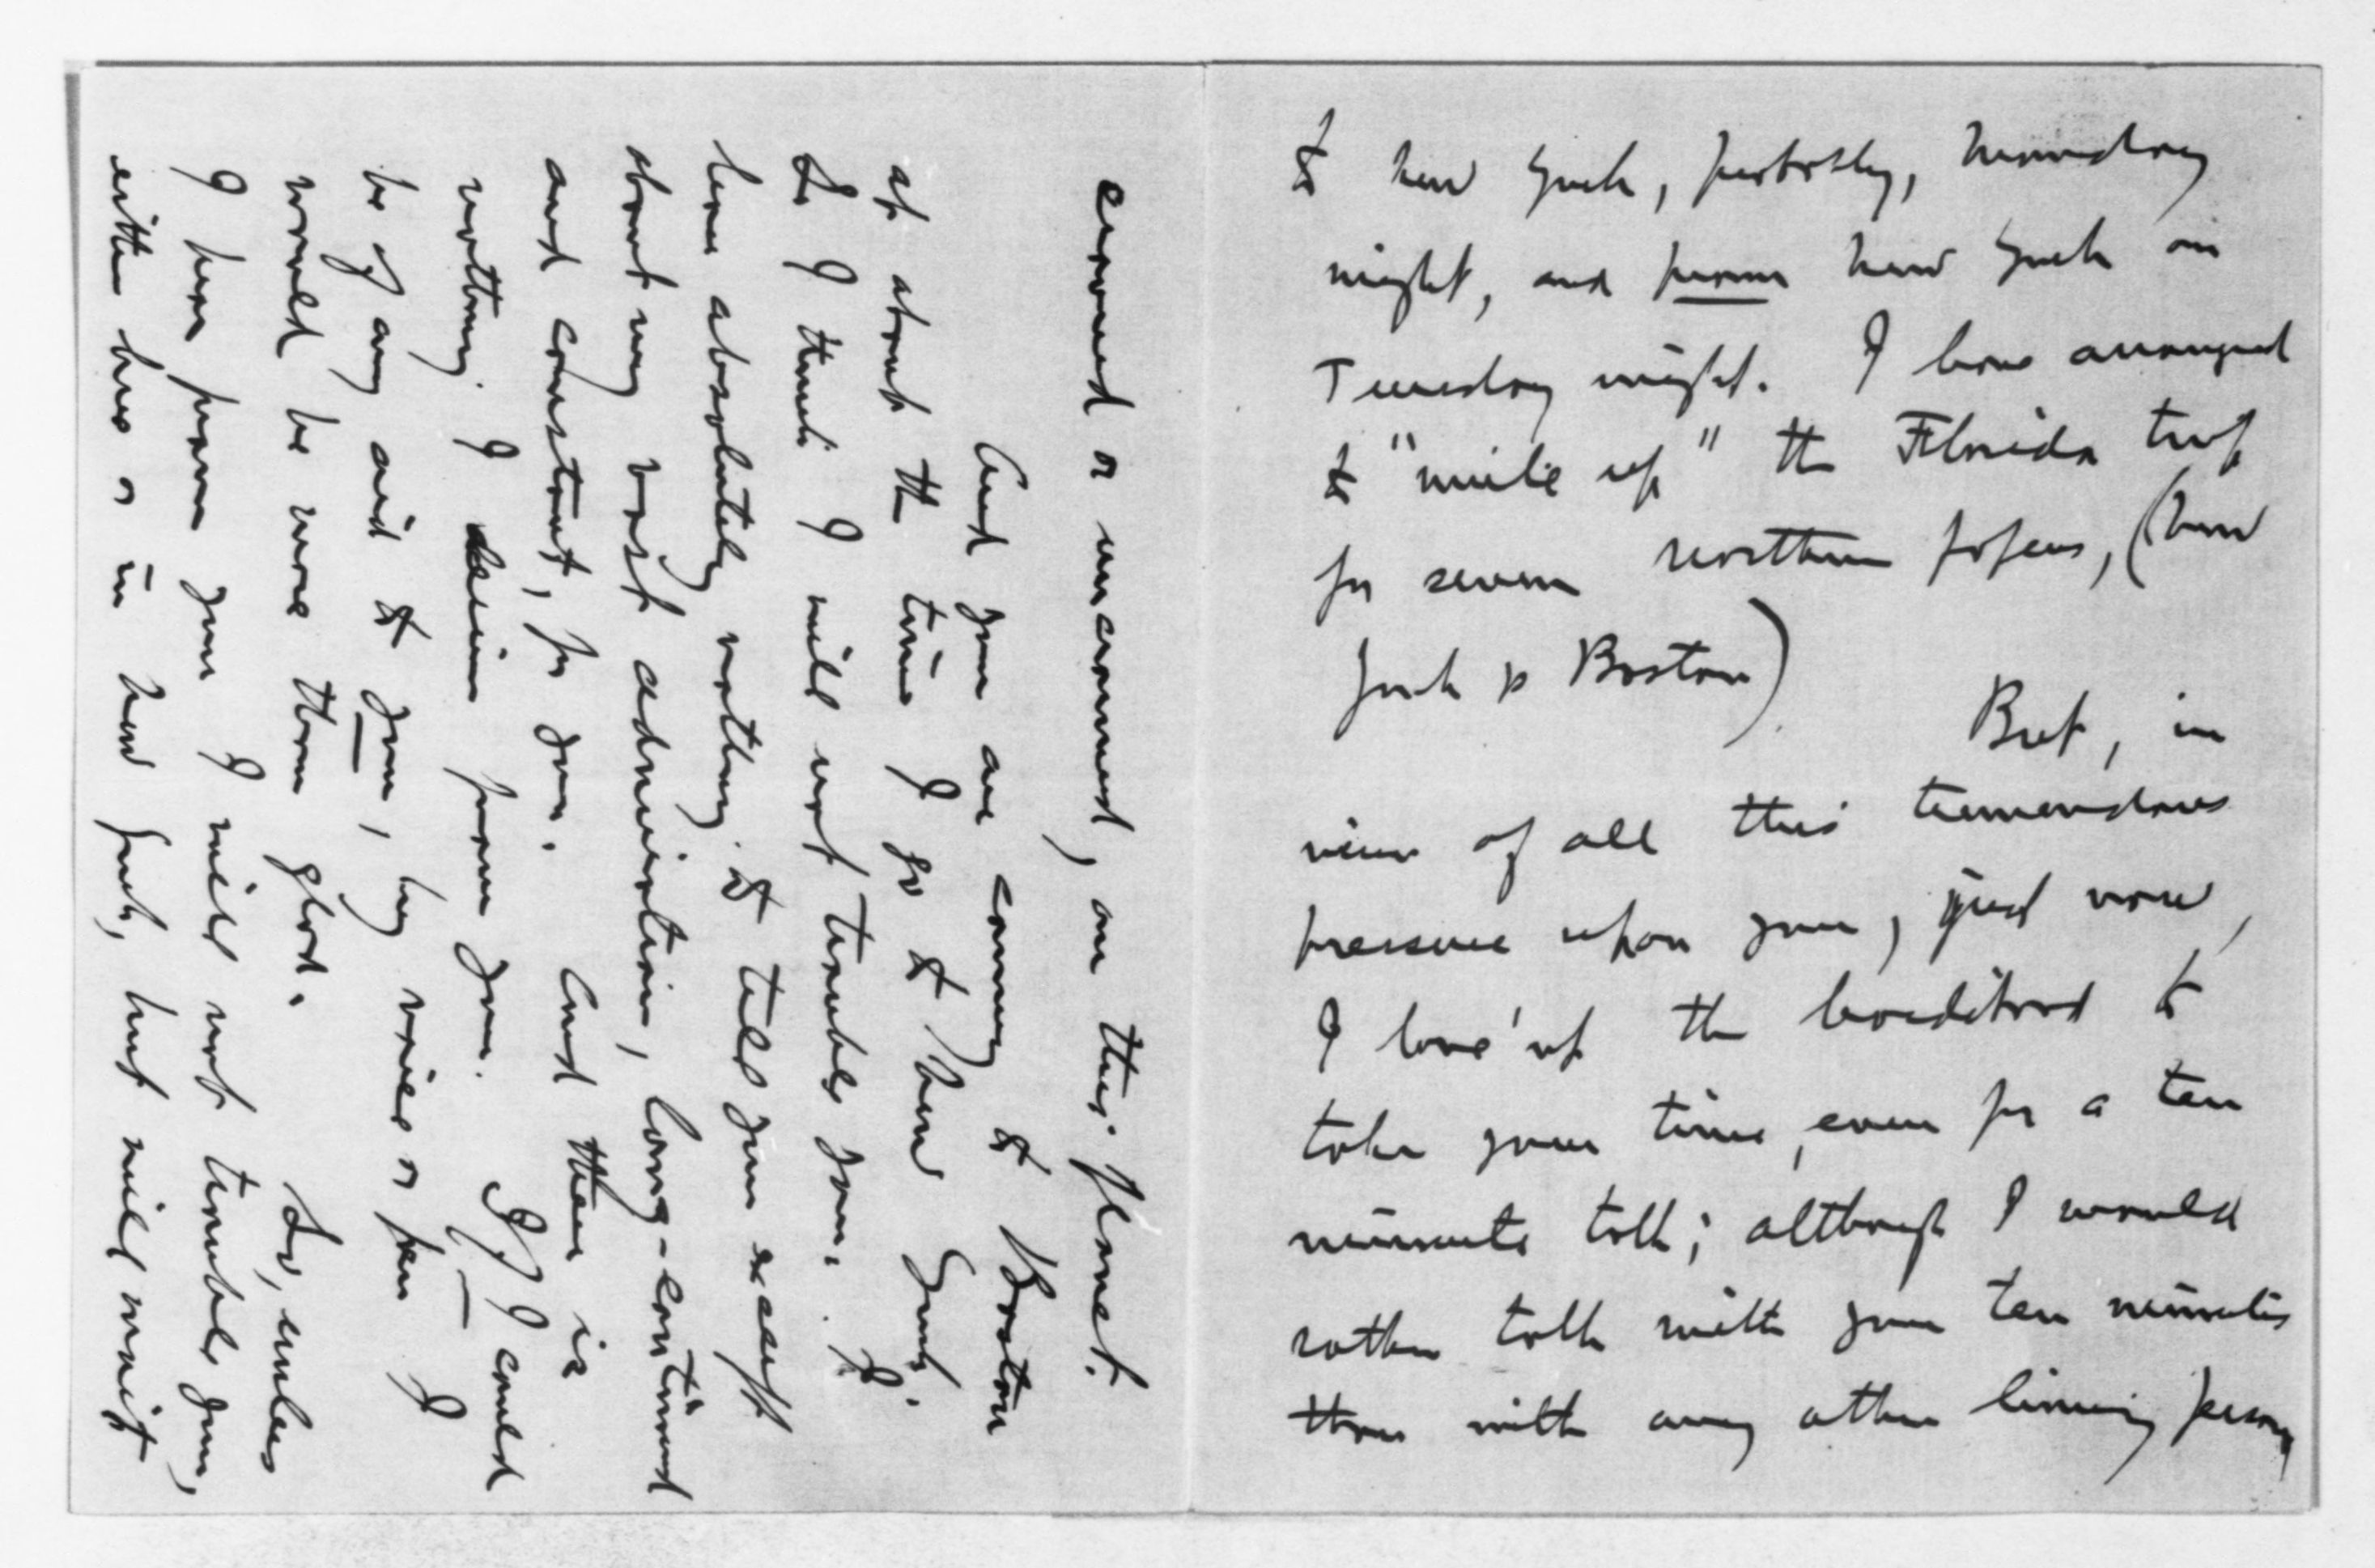 to New York, probably, Monday
night, and from New York on
Tuesday night. I have arranged
to "write up" the Florida trip
for seven northern papers, (New
York & Boston)
But, in
view of all this tremendous
pressure upon you, just now,
I have'nt the hardihood to
take your time, even for a ten
minute talk; although I would
rather talk with you ten minutes
than with any other living person,
crowned or uncrowned, on this planet.
And you are coming to Boston
at about the time I go to New York.
So I think I will not trouble you. I
have absolutely nothing to tell you except
about my vast admiration, long-continued
and constant, for you. And there is
nothing I desire from you. If I could
be of any aid to you, by voice or pen I
would be more than glad.
So, unless
I hear from you I will not trouble you,
either here or in New York, but will wait